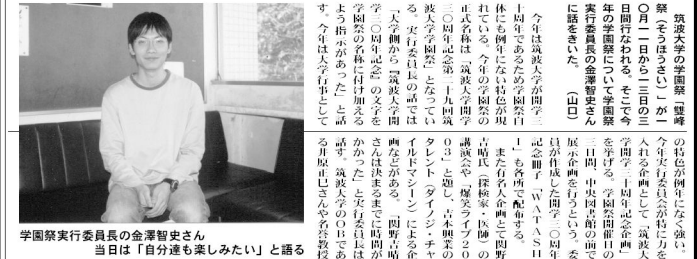 筑波大学の学園祭「雙峰
祭(そうほうさい)」が一
〇月一一日から一三日の三
日間行なわれる。そこで今
年の学園祭について学園祭
実行委員長の金澤智史さん
に話をきいた。　(山口)
今年は筑波大学が開学三
十周年であるため学園祭自
体にも例年にない特色が現
れている。今年の学園祭の
正式名称は「筑波大学開学
三〇周年記念第二十九回筑
波大学学園祭」となってい
る。実行委員長の話では
「大学側から『筑波大学開
学三〇周年記念』の文字を
学園祭の名称に付け加える
よう指示があった」と話
す。今年は大学行事として
の特色が例年になく強い。
今年実行委員会が特に力を
入れる企画として「筑波大
学開学三十周年記念企画」
を挙げる。学園祭開催日の
三日間、中央図書館の前で
展示企画を行うという。委
員が作成した開学三〇周年
記念冊子「WATASH
I」も各所で配布する。
また有名人企画として関野
吉晴氏(探検家・医師)の
講演会や、「爆笑ライブ20
03」と題し、吉本興業の
タレント(ダイノジ・チャ
イルドマシーン)による企
画などがある。「関野吉晴
さんは決まるまでに時間が
かかった」と実行委員長は
話す。筑波大学のOBであ
る井原正巳さんや名誉教授
学園祭実行委員長の金澤智史さん
当日は「自分達も楽しみたい」と語る